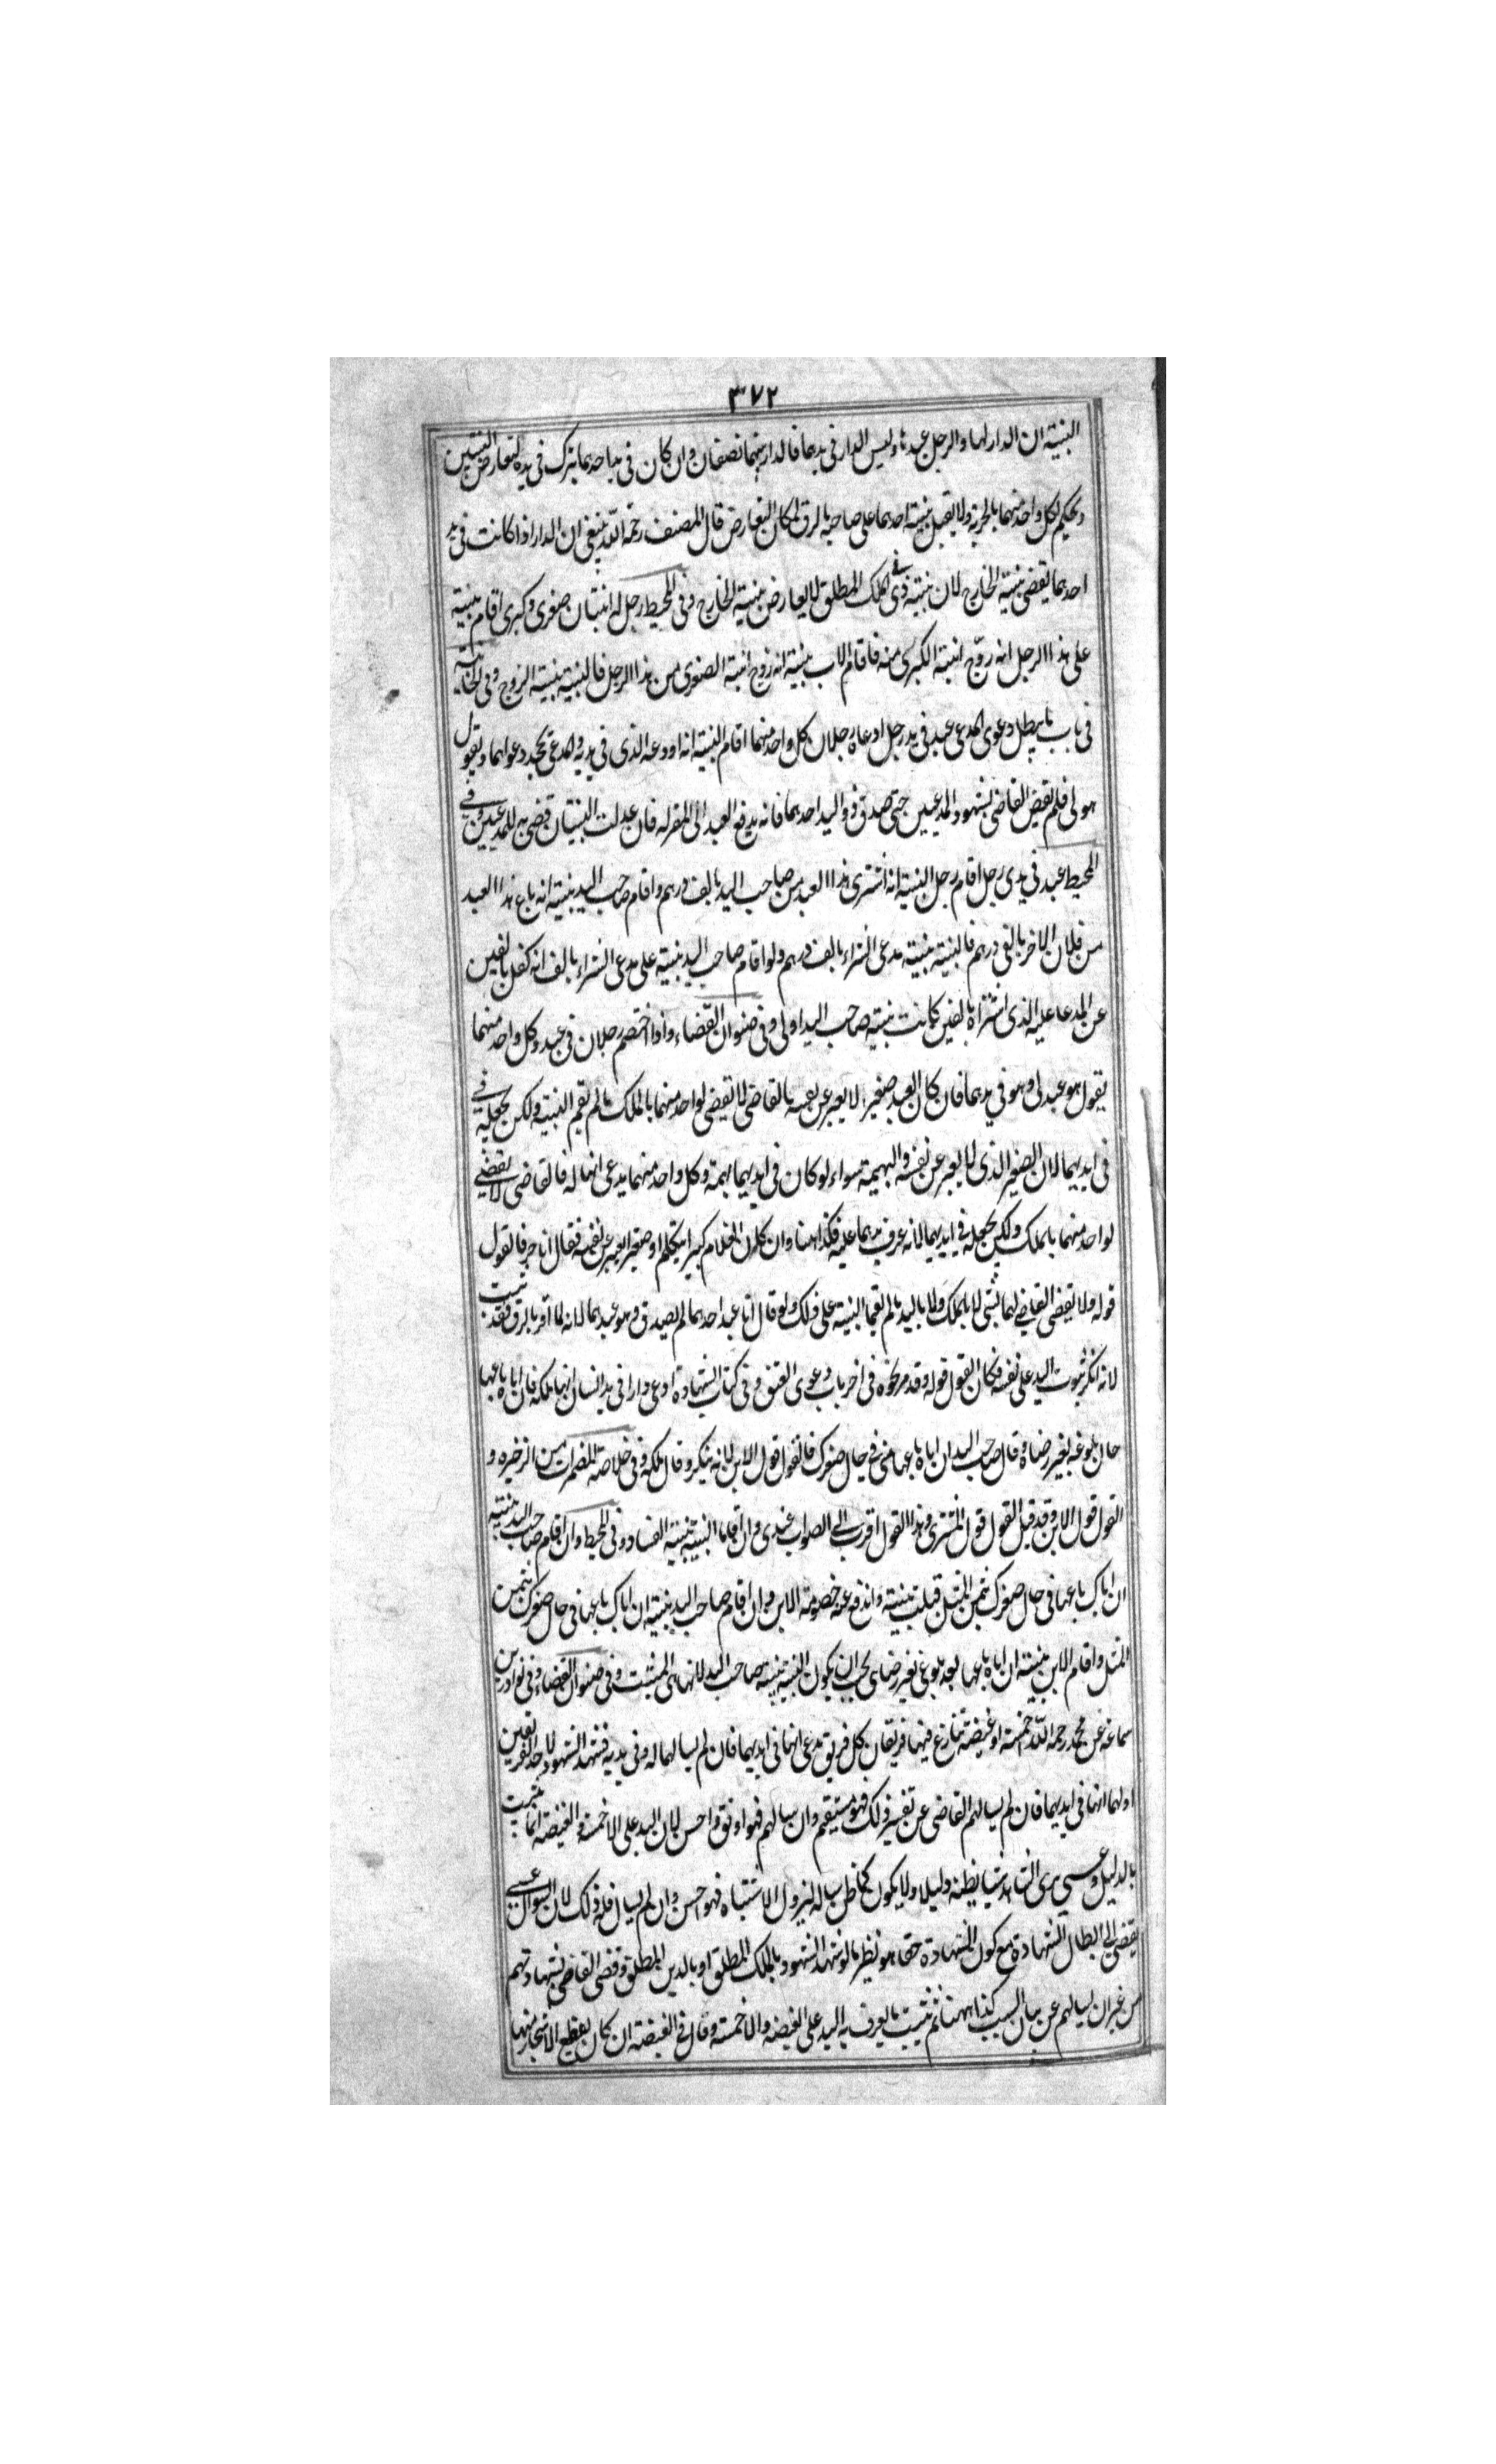 ٣٧٢
البينة ان الدار لها والرجل عبدها وليس الدار فى يدهما فالدار بينهما نصفان وان كان فى يد احدهما يترك فى يده لتعارض البينتين
ويحكم لكل واحد منهما بالحرية ولا يقبل بينة احدهما على صاحبه بالرق لمكان التعارض قال المصنف رحمه الله ينبغى ان الدار اذا كانت فى يد
احدهما يقضى ببينة الخارج لان بينة ذى اليد فى الملك المطلق لا يعارض بينة الخارج وفى المحيط رجل له ابنتان صغرى وكبرى اقام بينة
على هذا الرجل انه زوج ابنته الكبرى منه فاقام الاب بينة انه زوج ابنته الصغرى من هذا الرجل فالبينة بينة الزوج وفى الخانية
فى باب ما يبطل دعوى المدعى عبد فى يد رجل ادعاه رجلان كل واحد منهما اقام البينة انه اودعه الذى فى يديه والمدعى يجحد دعواهما ويقول
هو لى فلم يقض القاضى بشهود المدعيين حتى صدق ذو اليد احدهما فانه يدفع العبد الى المقر له فان عدلت البينتان قضى به للمدعيين وفى
المحيط عبد فى يدى رجل اقام رجل البينة انه اشترى هذا العبد من صاحب اليد بالف درهم واقام صاحب اليد بينة انه باع هذا العبد
من فلان الاخر بالفى درهم فالبينة بينة مدعى الشراء بالف درهم ولو اقام صاحب اليد بينة على مدعى الشراء بالف انه كفل بالفين
عن المدعا عليه الذى اشتراه بالفين كانت بينة صاحب اليد اولى وفى صنوان القضاء واذا اختصم رجلان فى عبد وكل واحد منهما
يقول هو عبدى وهو فى يدهما فان كان العبد صغيرا لا يعبر عن نفسه فالقاضى لا يقضى لواحد منهما بالملك مالم يقم البينة ولكن يجعله فى
فى ايديهما لان الصغير الذى لا يعبر عن نفسه والبهيمة سواء لو كان فى ايديهما بهيمة وكل واحد منهما يدعى انها له فالقاضى لا يقضى
لواحد منهما بالملك ولكن يجعله فى ايديهما لانه عرف يدهما عليه فكذا ههنا وان كان الغلام كبيرا يتكلم او صغيرا يعبر عن نفسه فقال انا حر فالقول
قوله ولا يقضى القاضى لهما بشئ لا بالملك ولا باليد مالم يقيما البينة على ذلك ولو قال انا عبد احدهما لم يصدق وهو عبدهما لانه لما اقر بالرق فقد ثبت
لانه انكر ثبوت اليد على نفسه فكان القول قوله وقد مر نحوه فى اخر باب دعوى العتق وفى كتاب الشهادة ادعى دارا فى يد انسان انها ملكه فان اباه باعها
حال بلوغه بغير رضاه وقال صاحب اليد ان اباه باعها منى فى حال صغرك فالقول قول الابن لانه ينكر زوال ملكه وفى خلاصة المضمرات من الذخيره و
القول قول الابن وقد قيل القول قول المشترى وهذا القول اقرب الى الصواب عندى وان اقاما البينة بينة الفساد وفى المحيط وان اقام صاحب اليد بينة
ان اباك باعها فى حال صغرك بثمن المثل قبلت بينته واندفع عنه خصومة الابن وان اقام صاحب اليد بينة ان اباك باعها فى حال صغرك بثمن
المثل واقام الابن بينة ان اباه باعها بعد بلوغى بغير رضاى يجب ان يكون البينة بينة صاحب اليد لانها هى المثبت وفى صنوان القضاء وفى نوادر ابن
سماعة عن محمد رحمه الله خمسة او غيضة تنازع فيها فريقان كل فريق يدعى انها فى ايديهما فان لم يسالهما له وفى يديه فشهد الشهود لاحد الفريقين
اولهما انها فى ايديهما فان لم يسالهم القاضى عن تفسير ذلك فهو مستقيم وان سالهم فهو اوثق واحسن لان اليد على الاخمة والغيضة انما يثبت
بالدليل وعسى يرى الشاهد شيا يظنه دليلا ولا يكون كما ظن يساله ليزول الاشتباه فهو احسن وان لم يسال فله ذلك لان السوال عسى
يفضى الى ابطال الشهادة مع كون الشهادة حقا هو نظير مالو شهد الشهود بالملك المطلق او بالدين المطلق وقضى القاضى بشهادتهم
من غير ان يسالهم عن بيان السبب كذا ههنا ثم تثبت ما يعرف به اليد على الغيضة والاخمة وقال فى الغيضة ان كان يقطع الاشجار منها